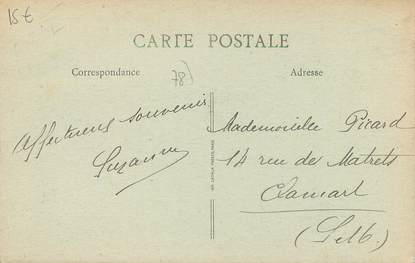 15€
CARTE POSTALE
Correspondance
Adresse
78)
Affectueux souvenir
Suzanne
Mademoiselle Picard
14 rue de Matrets
Clamart